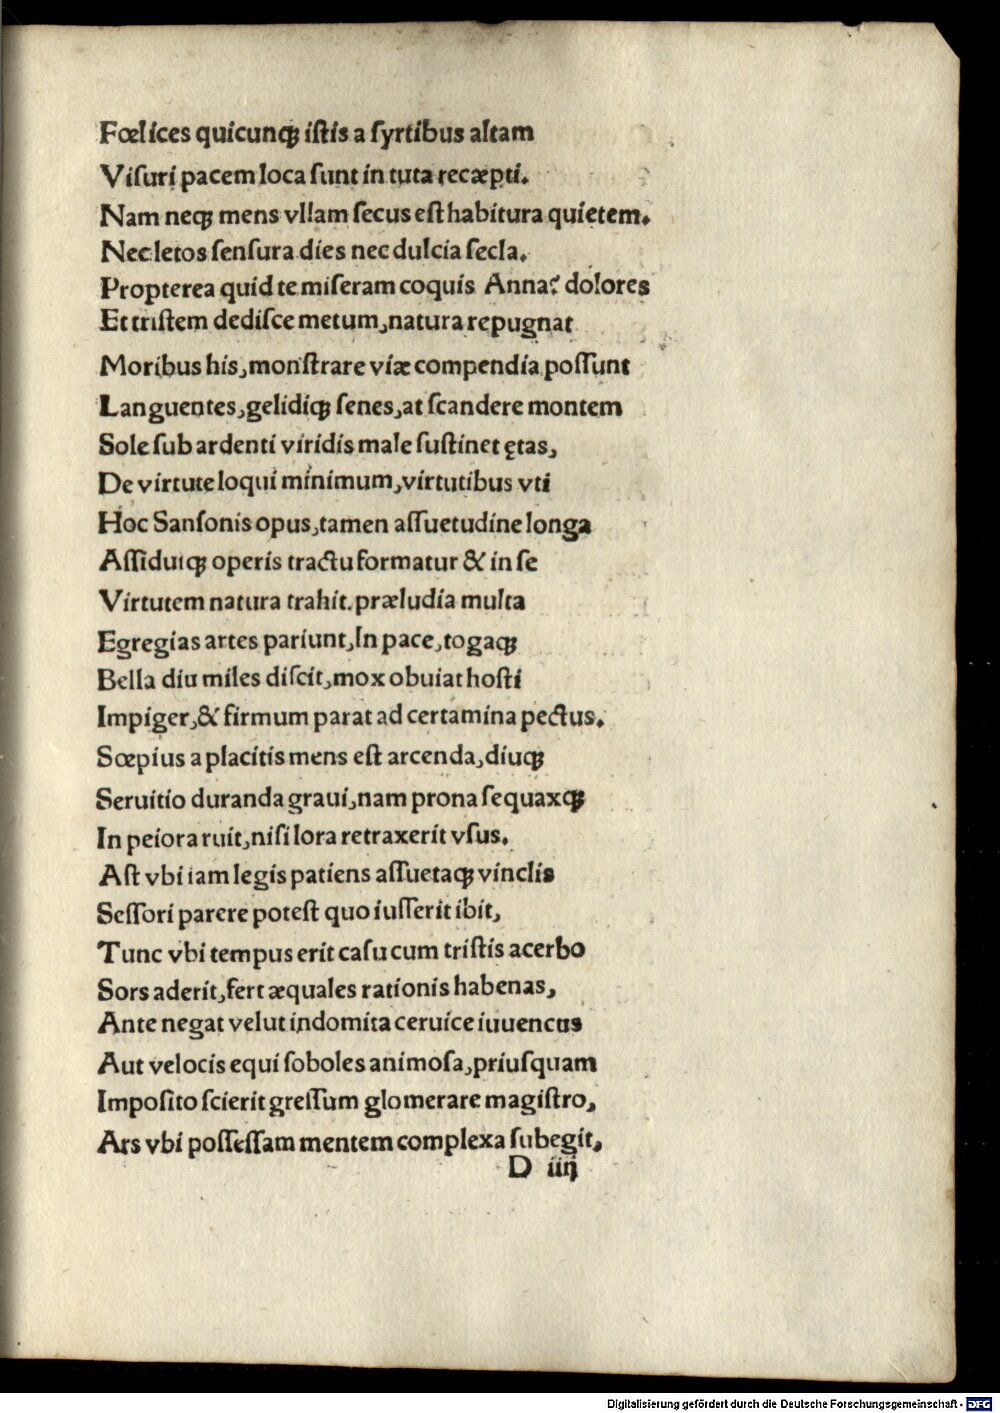 Fœlices quicunꝗ iſtis a ſyrtibus altam
Viſuri pacem loca ſunt in tuta recæpti.
Nam neꝗ mens vllam ſecus eſt habitura quietem.
Nec letos ſenſura dies nec dulcia ſecla.
Propterea quid te miſeram coquis Anna? dolores
Et triſtem dediſce metum, natura repugnat
Moribus his, monſtrare viæ compendia poſſunt
Languentes, gelidiꝗ ſenes, at ſcandere montem
Sole ſub ardenti viridis male ſuſtinet ętas,
De virtute loqui minimum, virtutibus vti
Hoc Sanſonis opus, tamen aſſuetudine longa
Aſſiduiꝗ operis tractu formatur & in ſe
Virtutem natura trahit. præludia multa
Egregias artes pariunt, In pace, togaꝗ
Bella diu miles diſcit, mox obuiat hoſti
Impiger, & firmum parat ad certamina pectus.
Sœpius a placitis mens eſt arcenda, diuꝗ
Seruitio duranda graui, nam prona ſequaxꝗ
In peiora ruit, niſi lora retraxerit vſus.
Aſt vbi iam legis patiens aſſuetaꝗ vinclis
Seſſori parere poteſt quo iuſſerit ibit,
Tunc vbi tempus erit caſu cum triſtis acerbo
Sors aderit, fert æquales rationis habenas,
Ante negat velut indomita ceruice iuuencus
Aut velocis equi ſoboles animoſa, priuſquam
Impoſito ſcierit greſſum glomerare magiſtro,
Ars vbi poſſeſſam mentem complexa ſubegit,
D iiij
Digitalisierung gefördert durch die Deutsche Forschungsgemeinschaft - DFG